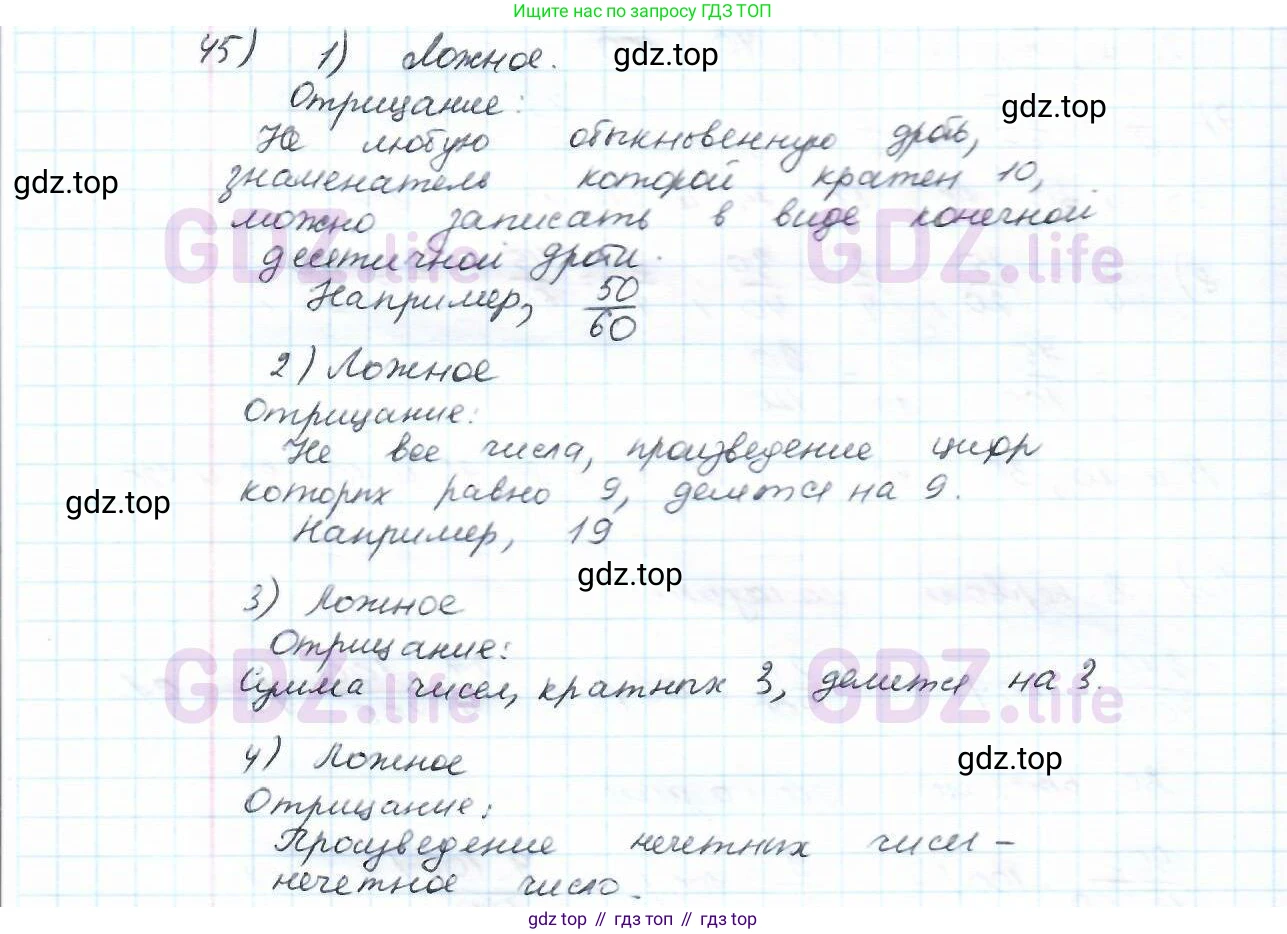 Ищите нас по запросу ГДЗ ТОП
45) 1) Ложное.
gdz.top
Отрицание:
gdz.top
Не любую обыкновенную дробь,
gdz.top
знаменатель которой кратен 10,
можно записать в виде конечной
GDZ.life GDZ.life
десятичной дроби.
Например, 50/60
2) Ложное
Отрицание:
Не все числа, произведение цифр
которых равно 9, делятся на 9.
gdz.top
Например, 19
gdz.top
3) Ложное
Отрицание:
Сумма чисел, кратных 3, делится на 3.
GDZ.life GDZ.life
4) Ложное
gdz.top
Отрицание:
Произведение нечетных чисел –
нечетное число.
gdz top // гдз топ // гдз top